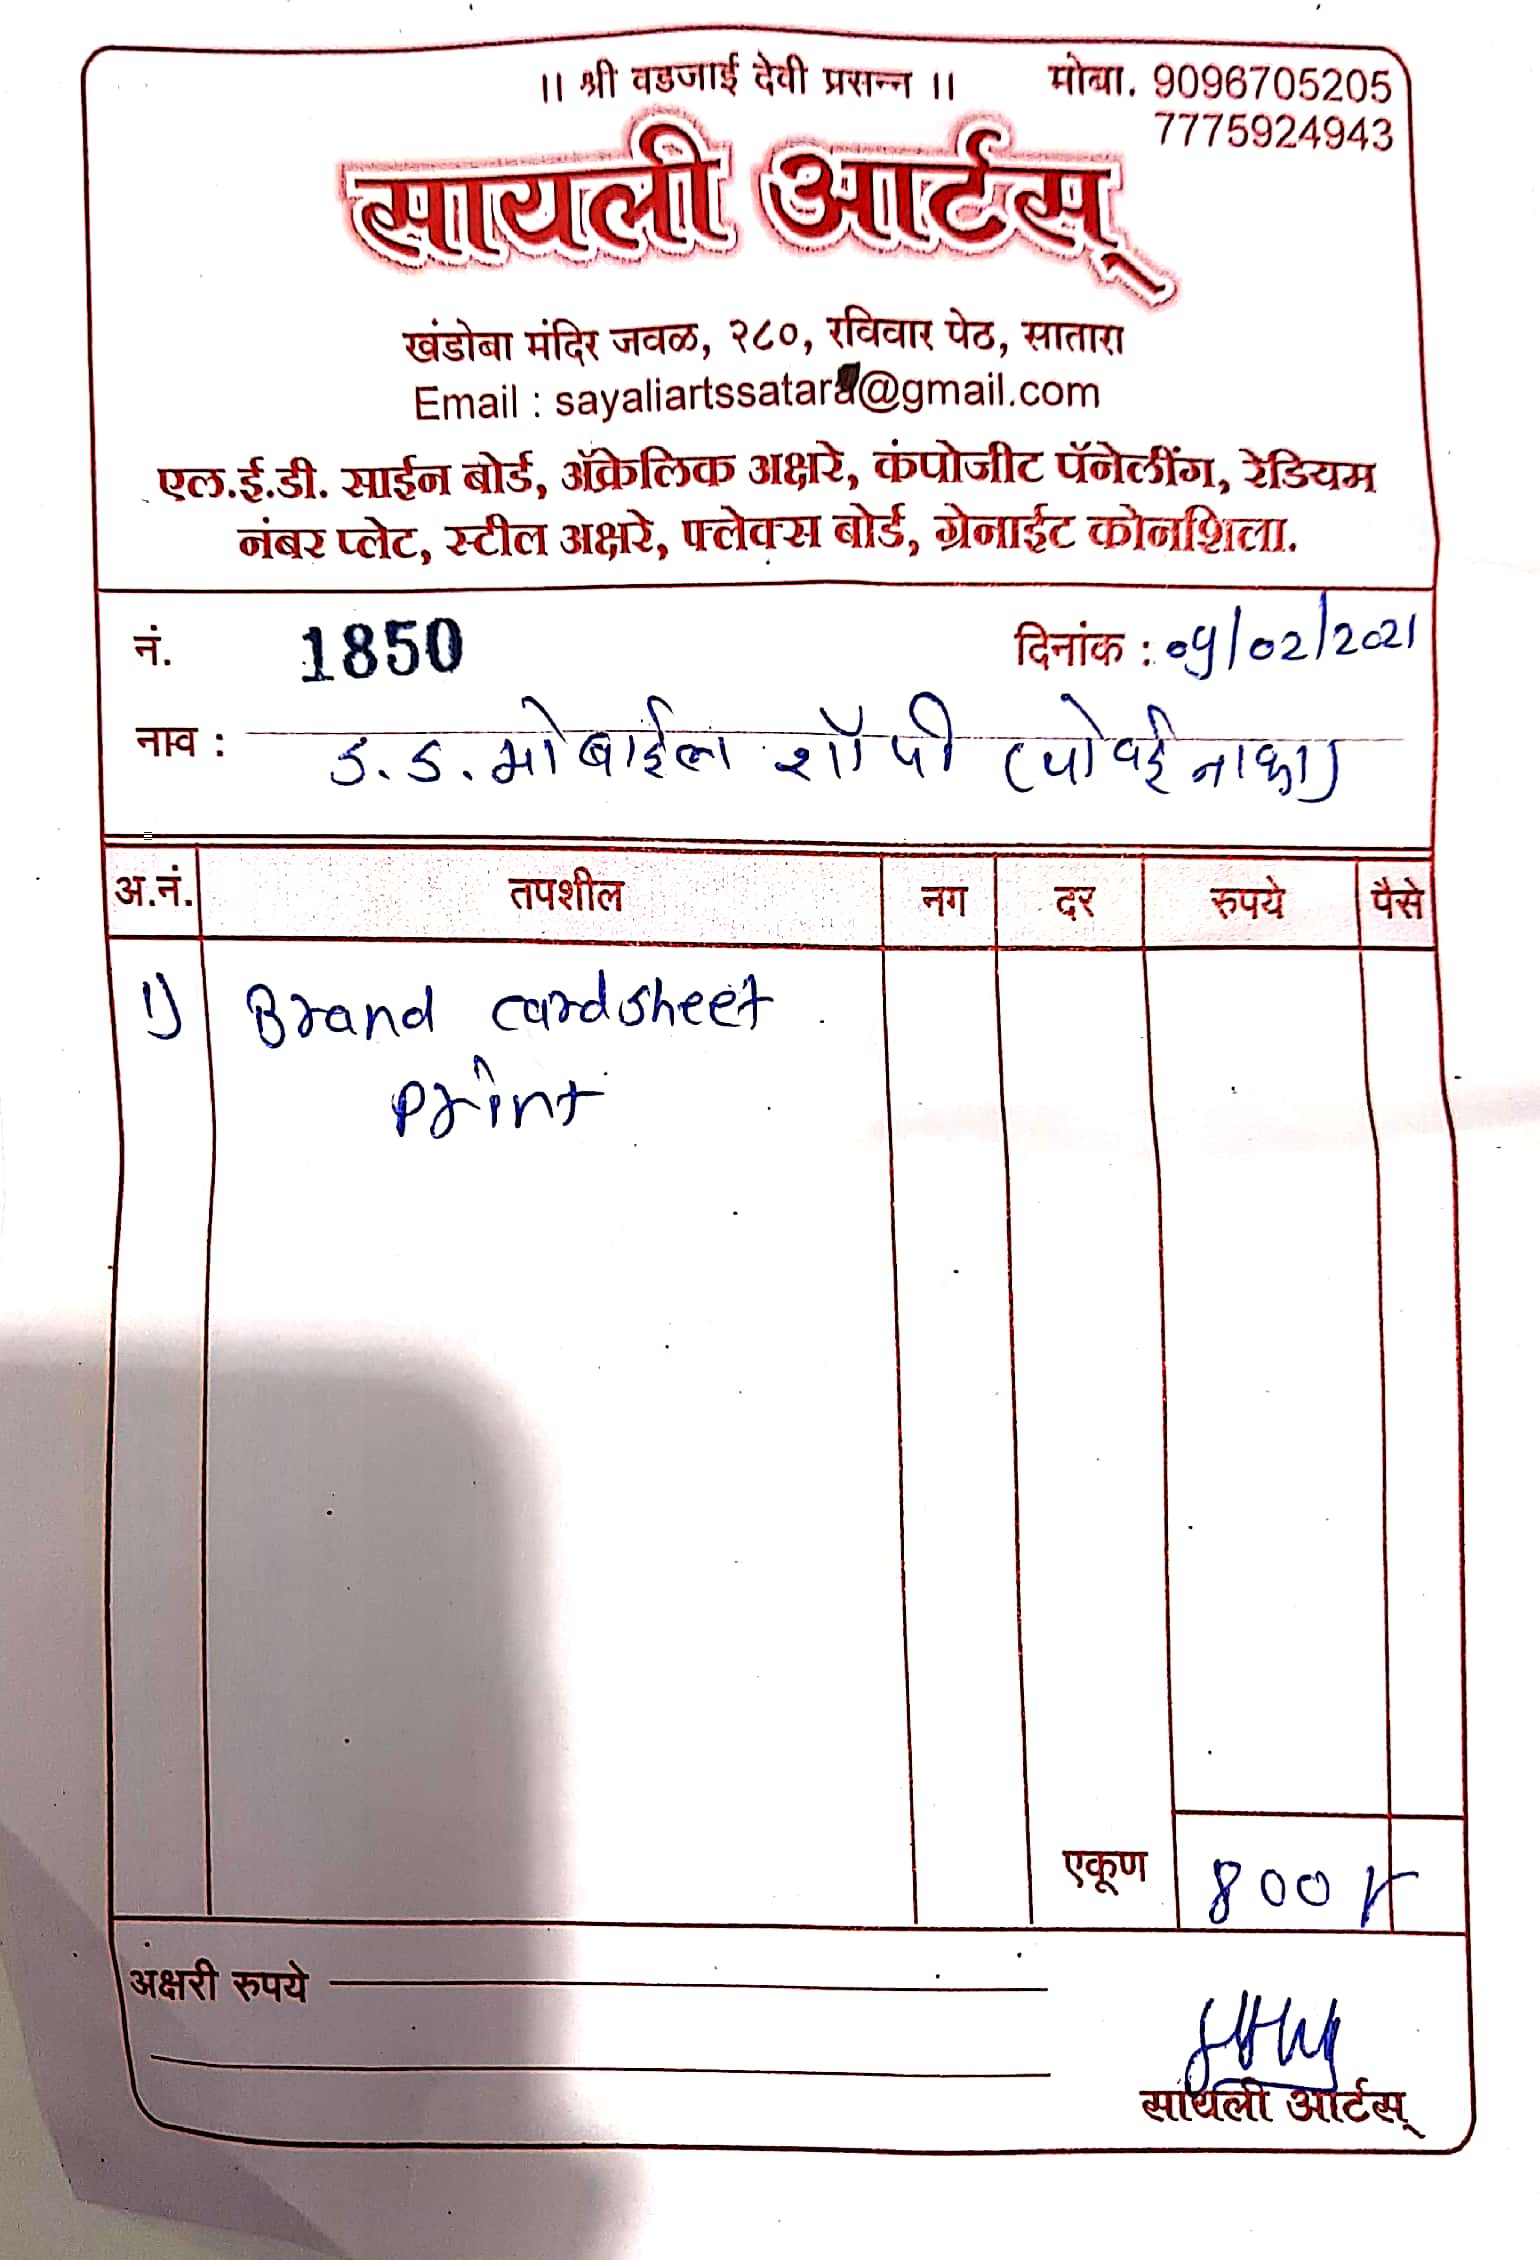 ।। श्री वडजाई देवी प्रसन्न ।।
मोबा. 9096705205
7775924943
सायली आर्टस्
खंडोबा मंदिर जवळ, २८०, रविवार पेठ, सातारा
Email : sayaliartssatara@gmail.com
एल.ई.डी. साईन बोर्ड, ॲक्रेलिक अक्षरे, कंपोजीट पॅनेलींग, रेडियम
नंबर प्लेट, स्टील अक्षरे, फ्लेक्स बोर्ड, ग्रेनाईट कोनशिला.
नं. 1850 दिनांक : 09/02/2021
नाव : ड. ड. मोबाईल शॉपी (पोवई नाका)
अ.नं. तपशील नग दर रुपये पैसे
1) Brand cardsheet
print
एकूण 800
अक्षरी रुपये
सायली आर्टस्